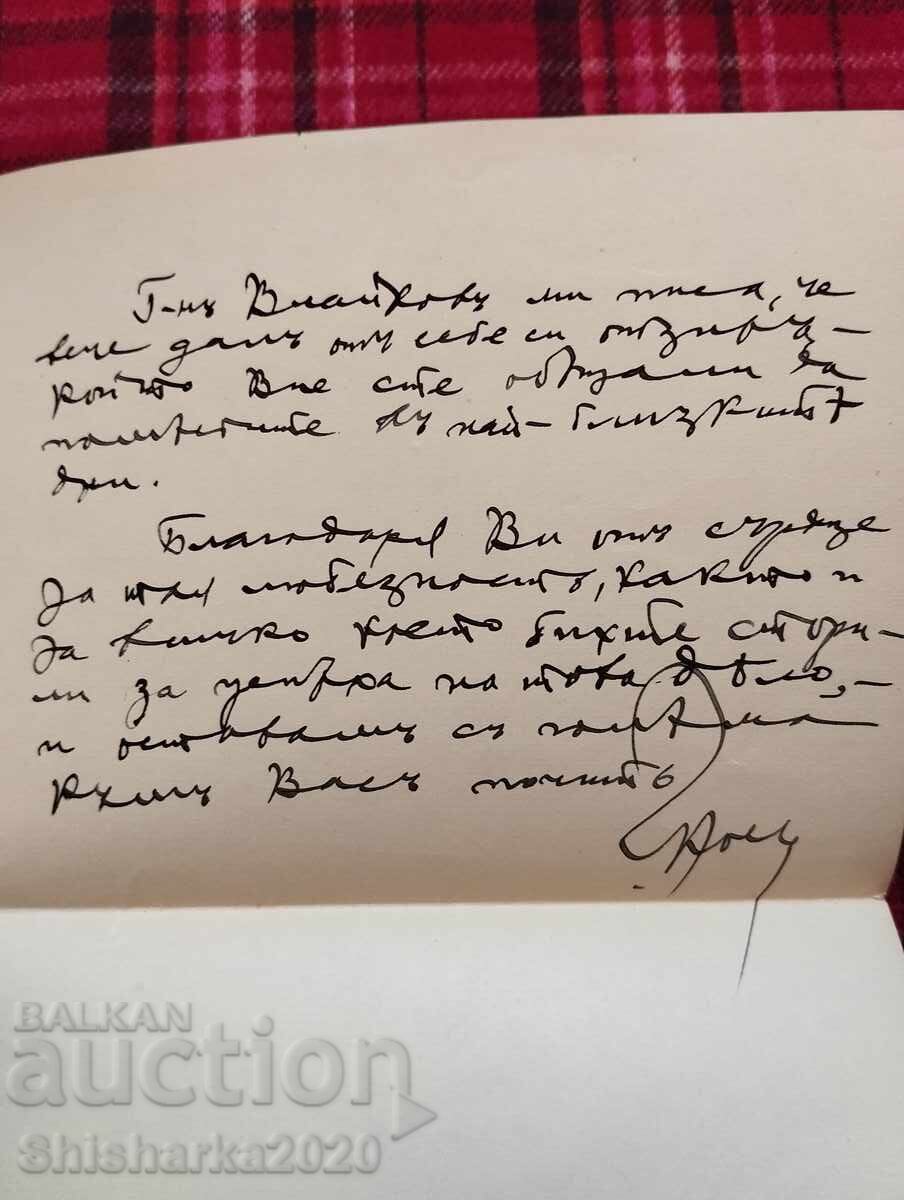 Г-нъ Влайковъ ми писа, че
вече далъ отъ себе си отзивъ –
който Вие сте обѣщали да
помѣстите въ най-близкитѣ
дни.
Благодаря Ви отъ сърдце
за тая любезность, както и
за всичко което бихте стори-
ли за успѣха на това дѣло, –
и оставамъ съ голѣма
къмъ Васъ почить
BALKAN
auction
Shisharka2020